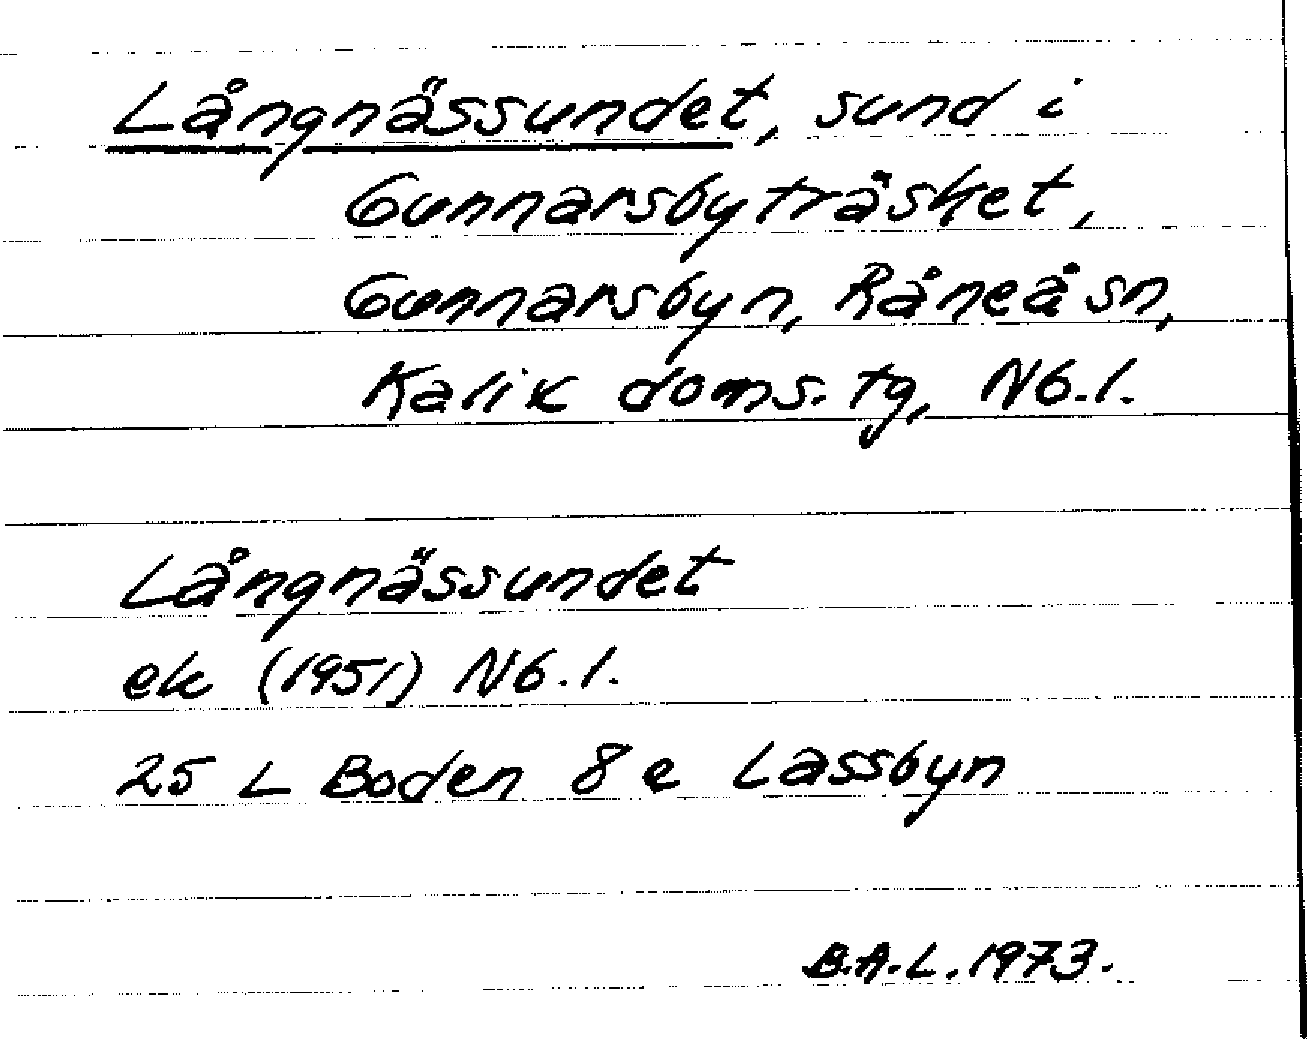 Långnässundet, sund i
Gunnarsbyträsket,
Gunnarsbyn, Råneå sn,
Kalix doms. tg, Nb.l.
Långnässundet
ek (1951) Nb.l.
25 L Boden 8 e Lassbyn
B.A.L. 1973.